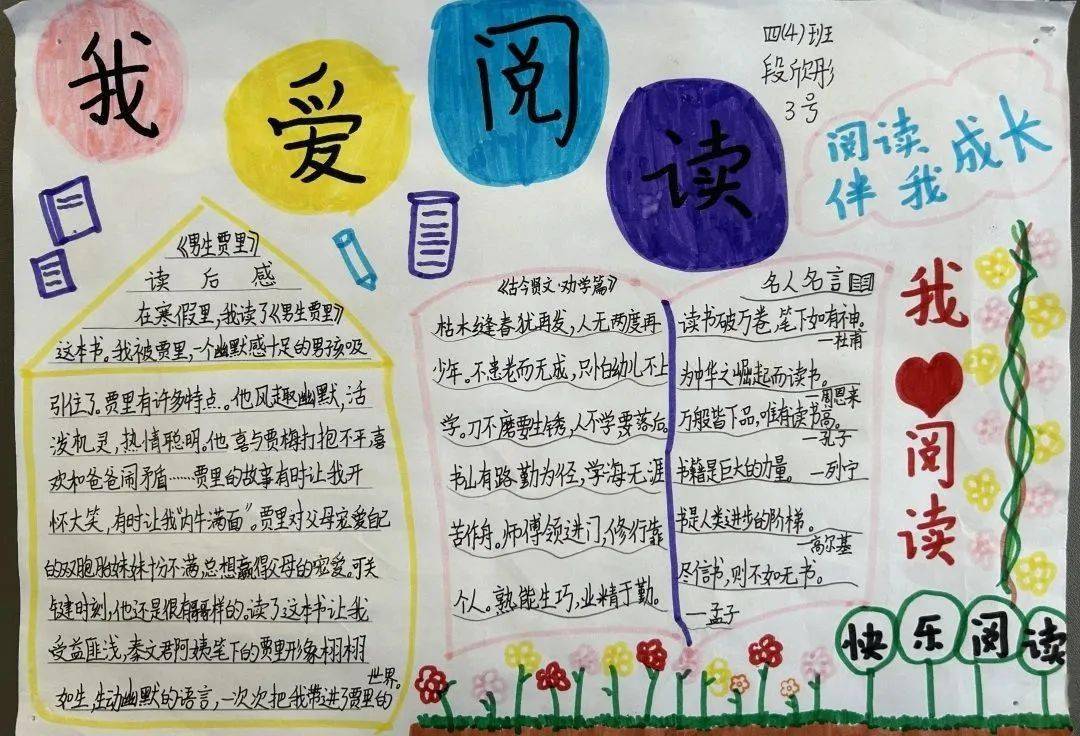 我爱阅读
四(4)班
段欣彤
3号
阅读
伴我成长
《男生贾里》
读后感
在寒假里,我读了《男生贾里》
这本书。我被贾里,一个幽默感十足的男孩吸
引住了。贾里有许多特点。他风趣幽默,活
泼机灵,热情聪明。他喜与贾梅打抱不平喜
欢和爸爸闹矛盾……贾里的故事有时让我开
怀大笑,有时让我“内牛满面”。贾里对父母宠爱自己
的双胞胎妹妹十分不满总想赢得父母的宠爱。可关
键时刻,他还是很有哥哥样的。读了这本书让我
受益匪浅,秦文君阿姨笔下的贾里形象栩栩
如生,生动幽默的语言,一次次把我带进了贾里的
世界。
《古今贤文·劝学篇》
枯木缝春犹再发,人无两度再
少年。不患老而无成,只怕幼儿不上
学。刀不磨要生锈,人不学要落后。
书山有路勤为径,学海无涯
苦作舟。师傅领进门,修行靠
个人。熟能生巧,业精于勤。
名人名言
读书破万卷,笔下如有神。
—杜甫
为中华之崛起而读书。
—周恩来
万般皆下品,唯有读书高。
—孔子
书籍是巨大的力量。—列宁
书是人类进步的阶梯。
—高尔基
尽信书,则不如无书。
—孟子
我
阅
读
快乐阅读